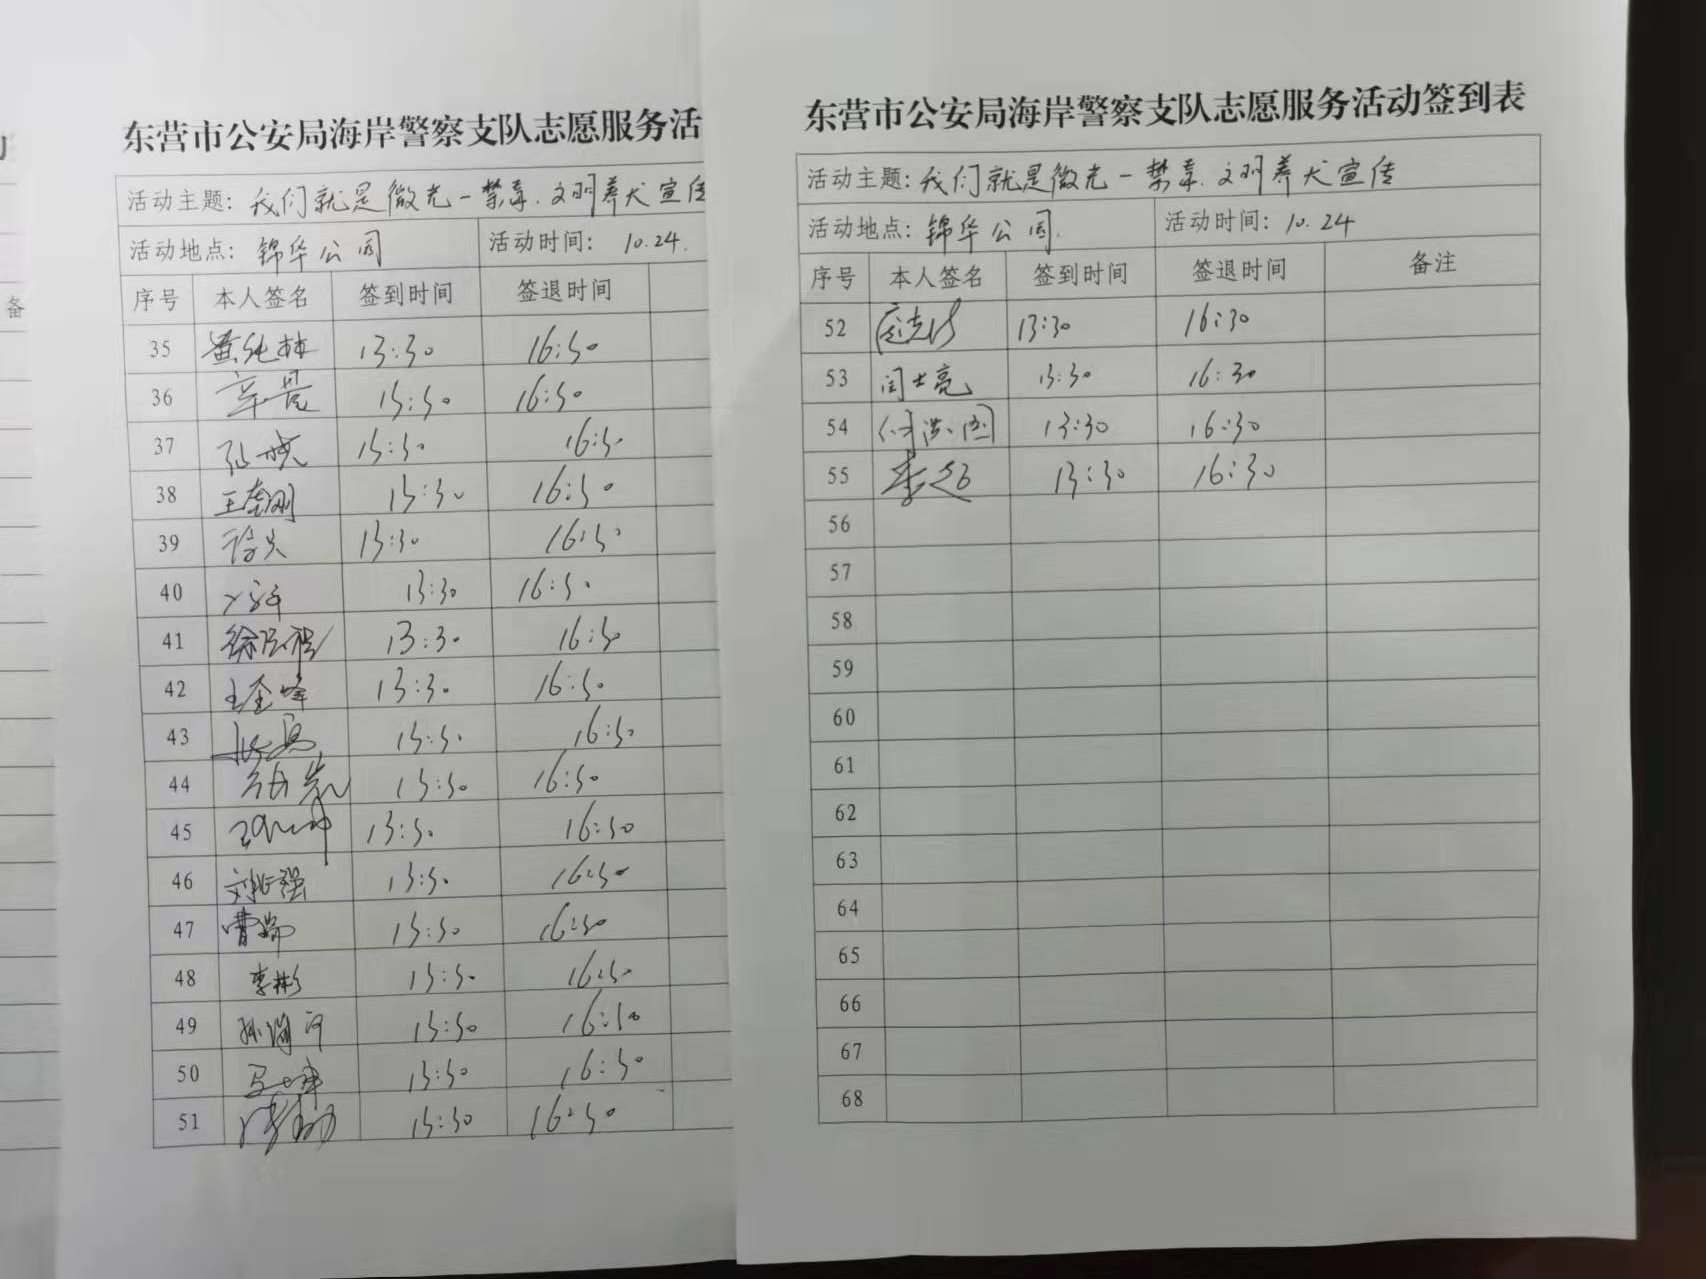 东营市公安局海岸警察支队志愿服务活
活动主题：我们就是微光-禁毒.文明养犬宣传
活动地点：锦华公园 活动时间：10.24.
序号 本人签名 签到时间 签退时间
35 黄纯林 13:30 16:30
36 13:30 16:30
37 13:30 16:30
38 王奎刚 13:30 16:30
39 13:30 16:30
40 13:30 16:30
41 13:30 16:30
42 王奎峰 13:30 16:30
43 13:30 16:30
44 13:30 16:30
45 13:30 16:30
46 13:30 16:30
47 曹瑞 13:30 16:30
48 李彬 13:30 16:30
49 孙海河 13:30 16:30
50 13:30 16:30
51 13:30 16:30
备
东营市公安局海岸警察支队志愿服务活动签到表
活动主题：我们就是微光-禁毒.文明养犬宣传
活动地点：锦华公园. 活动时间：10.24
序号 本人签名 签到时间 签退时间 备注
52 13:30 16:30
53 闫士亮 13:30 16:30
54 付洪国 13:30 16:30
55 李超 13:30 16:30
56
57
58
59
60
61
62
63
64
65
66
67
68